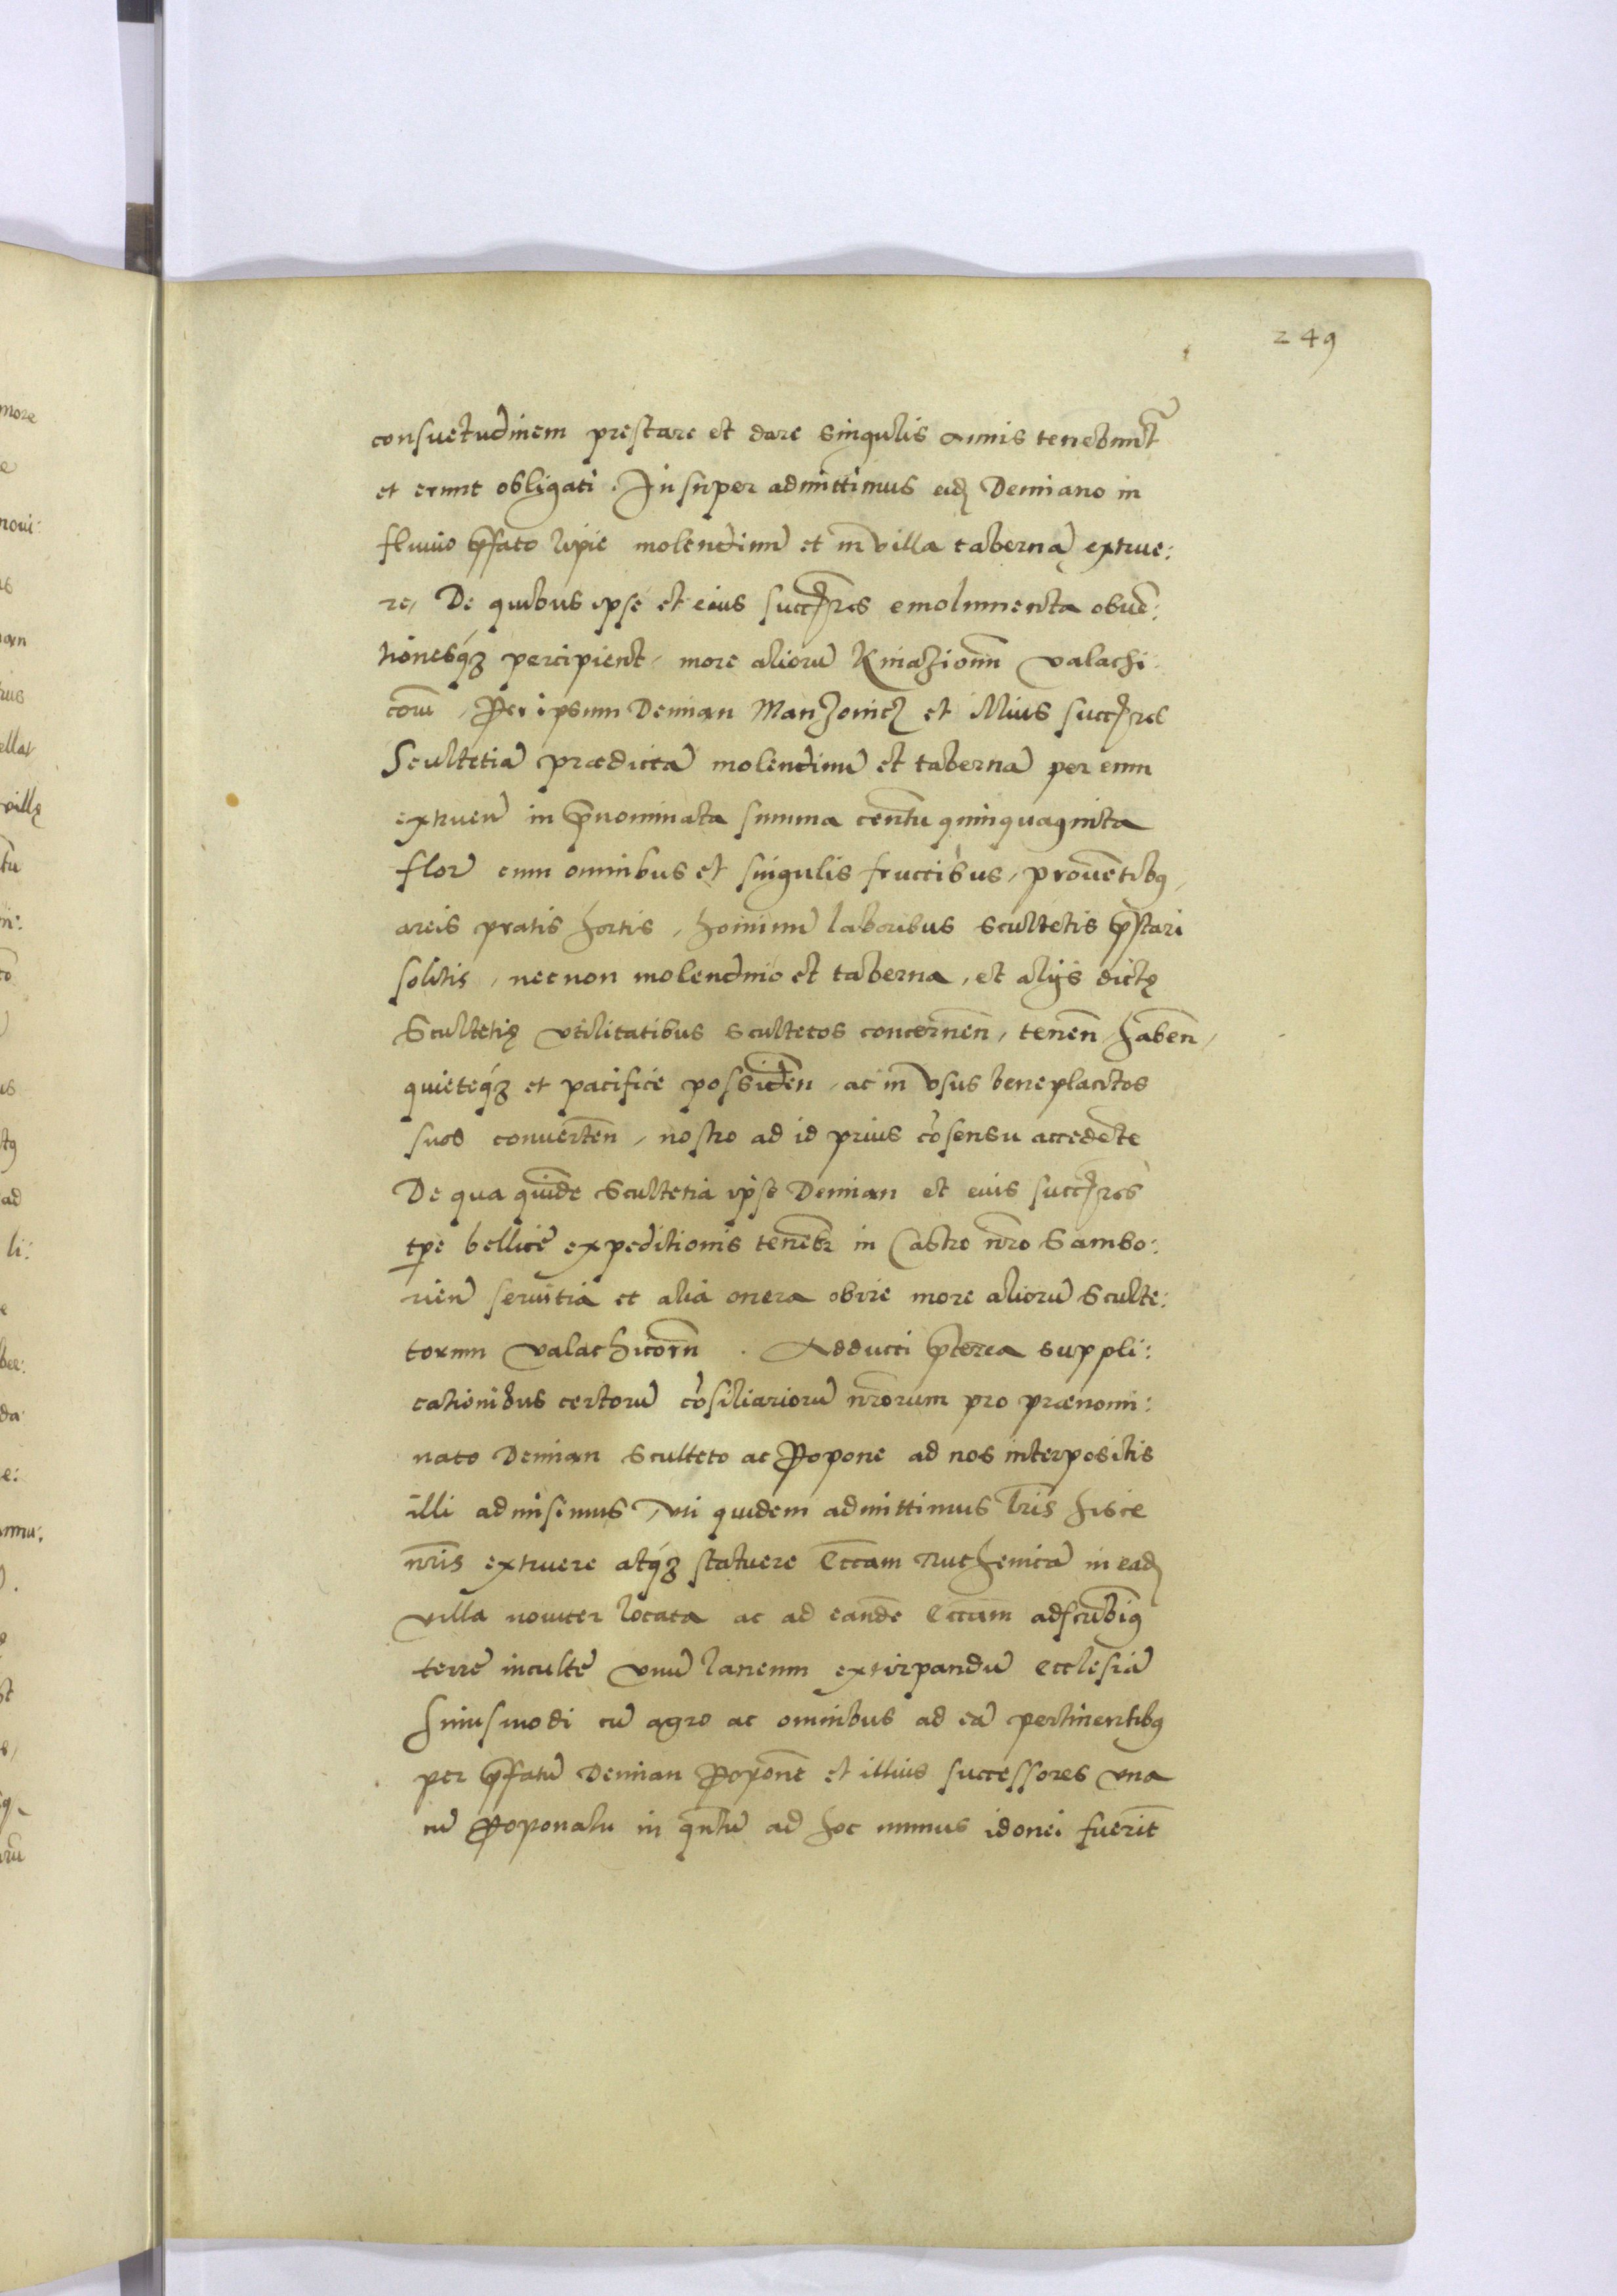 249
consuetudinem prestare et dare singulis annis tenebunt͂
et erunt obligati. Insuper admittimus eidӡ Demiano in
fluuio p̄fato lipie molendinū et in villa tabernā extrue:
re, De quibus ipse et eius succ̄res emolumenta obuē:
tionesq́ӡ percipient, more aliorū Kniazionū valachi:
corū, Per ipsum Demian Manzouicz et illius succ̄res
Scultetiā prædictā molendinū et tabernā per eum
extruen̄ in p̄nominata summa centū quinquaginta
flor̄ cum omnibus et singulis fructibus, prouētibꝫ,
areis pratis hortis, hominū laboribus scultetis p̄stari
solitis, necnon molendino et taberna, et alijs dictę
Scultetię vtilitatibus scultetos concernen̄, tenen̄ haben̄,
quieteq́ӡ et pacifice possiden̄, ac in vsus beneplacitos
suos conuerten̄, nostro ad id prius cōsensu accedēte
De qua quidē scultetia ipse Demian et eius succ̄res
tp̄e bellicē expeditionis tenebr̄ in Castro nr̄o Sambo:
rien̄ seruitia et alia onera obire more aliorū sculte:
torum valachicorū. Adducti p̄terea suppli:
cationibus certorū cōsiliariorū nr̄orum pro prænomi:
nato Demian sculteto ac Popone ad nos interpositis
illi admisimus, vti quidem admittimus lr̄is hisce
nr̄is extruere atq́ӡ statuere Ecc̄am Ruthenicā in eadӡ
villa nouiter locata ac ad eandē Ecc̄am adscribimꝫ
terrē incultē vnū laneum extirpandū ecclesiā
huiusmodi cū agro ac omnibus ad eā pertinentibꝫ
per p̄fatū Demian Poponē et illius successores vna
cū Poponatu in qn̄tū ad hoc munus idonei fuerīt